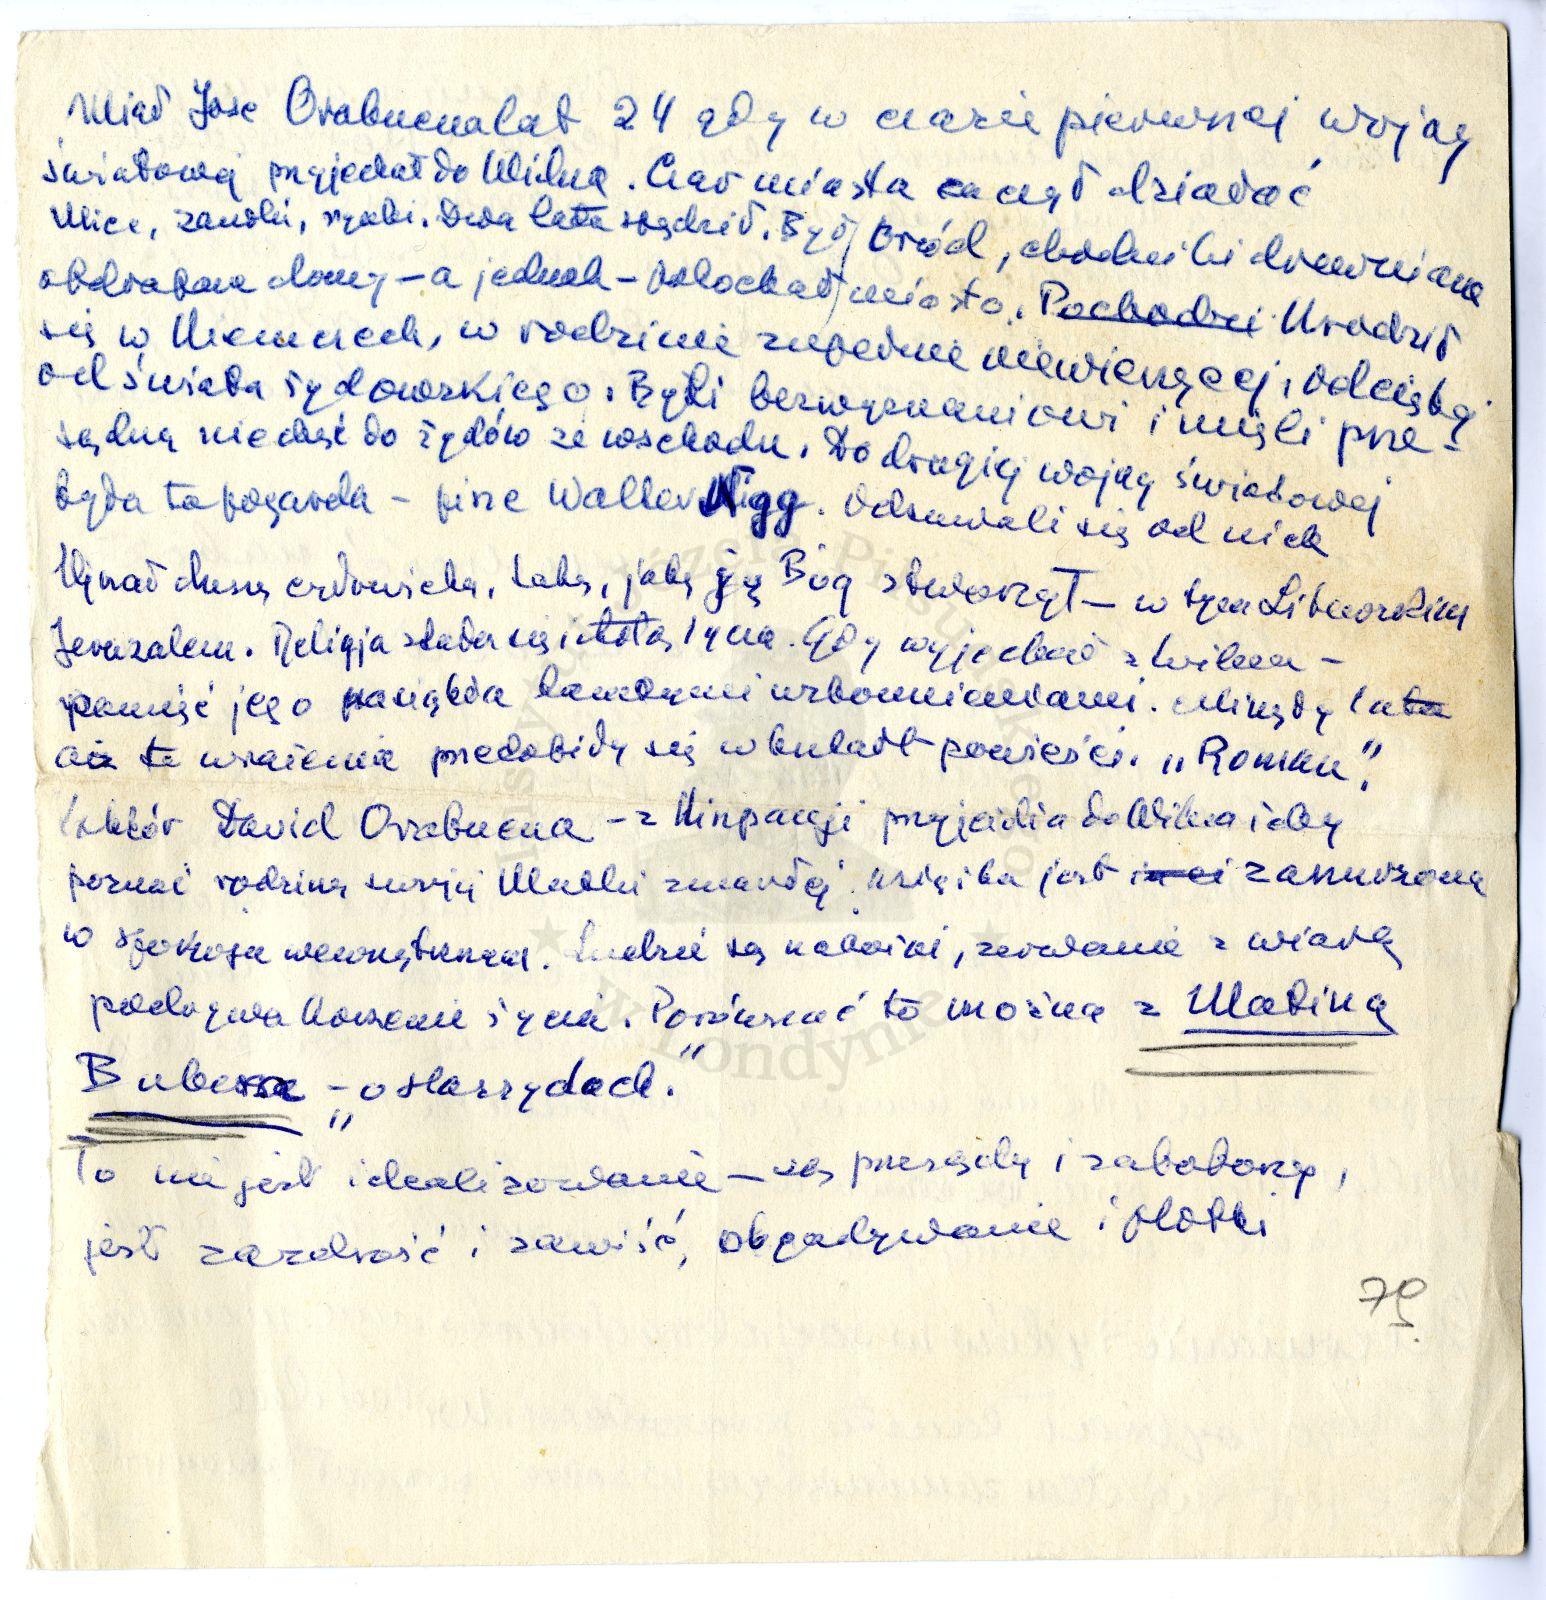 Miał Jose Orabuena lat 24 gdy w czasie pierwszej wojny
światowej przyjechał do Wilna. Czar miasta zaczął działać
Ulice, zaułki, rynki. Dwa lata spędził. Był głód, chodniki drewniane
obdrapane domy – a jednak – pokochał miasto. Pochodzi Urodził
się w Niemczech, w rodzinie zupełnie niewierzącej, odciętej
od świata żydowskiego. Byli bezwyznaniowi i mieli prze-
sądną niechęć do żydów ze wschodu. Do drugiej wojny światowej
była ta pogarda – pisze Walter Nigg. Odsuwali się od nich
Ujrzał duszę człowieka, taką, jaką ją Bóg stworzył – w tym Litewskim
Jeruzalem. Religja stała się istotą życia. Gdy wyjechał z Wilna –
pamięć jego nasiąkła tamtymi wspomnieniami. Minęły lata
aż te wrażenia przedobiły się w kształt powieści. „Roman".
Doktór David Orabuena – z Hiszpanji przyjeżdża do Wilna żeby
poznać rodzinę swojej Matki zmarłej. książka jest zanurzona
w spokoju wewnętrznym. Ludzie są nabożni, zerwanie z wiarą
podrywa korzenie życia. Porównać to można z Matiną
Bubera – „o Hassydach."
To nie jest idealizowanie – są przesądy i zabobony,
jest zazdrość i zawiść, obgadywanie i plotki
79.
Instytut Józefa Piłsudskiego
w Londynie